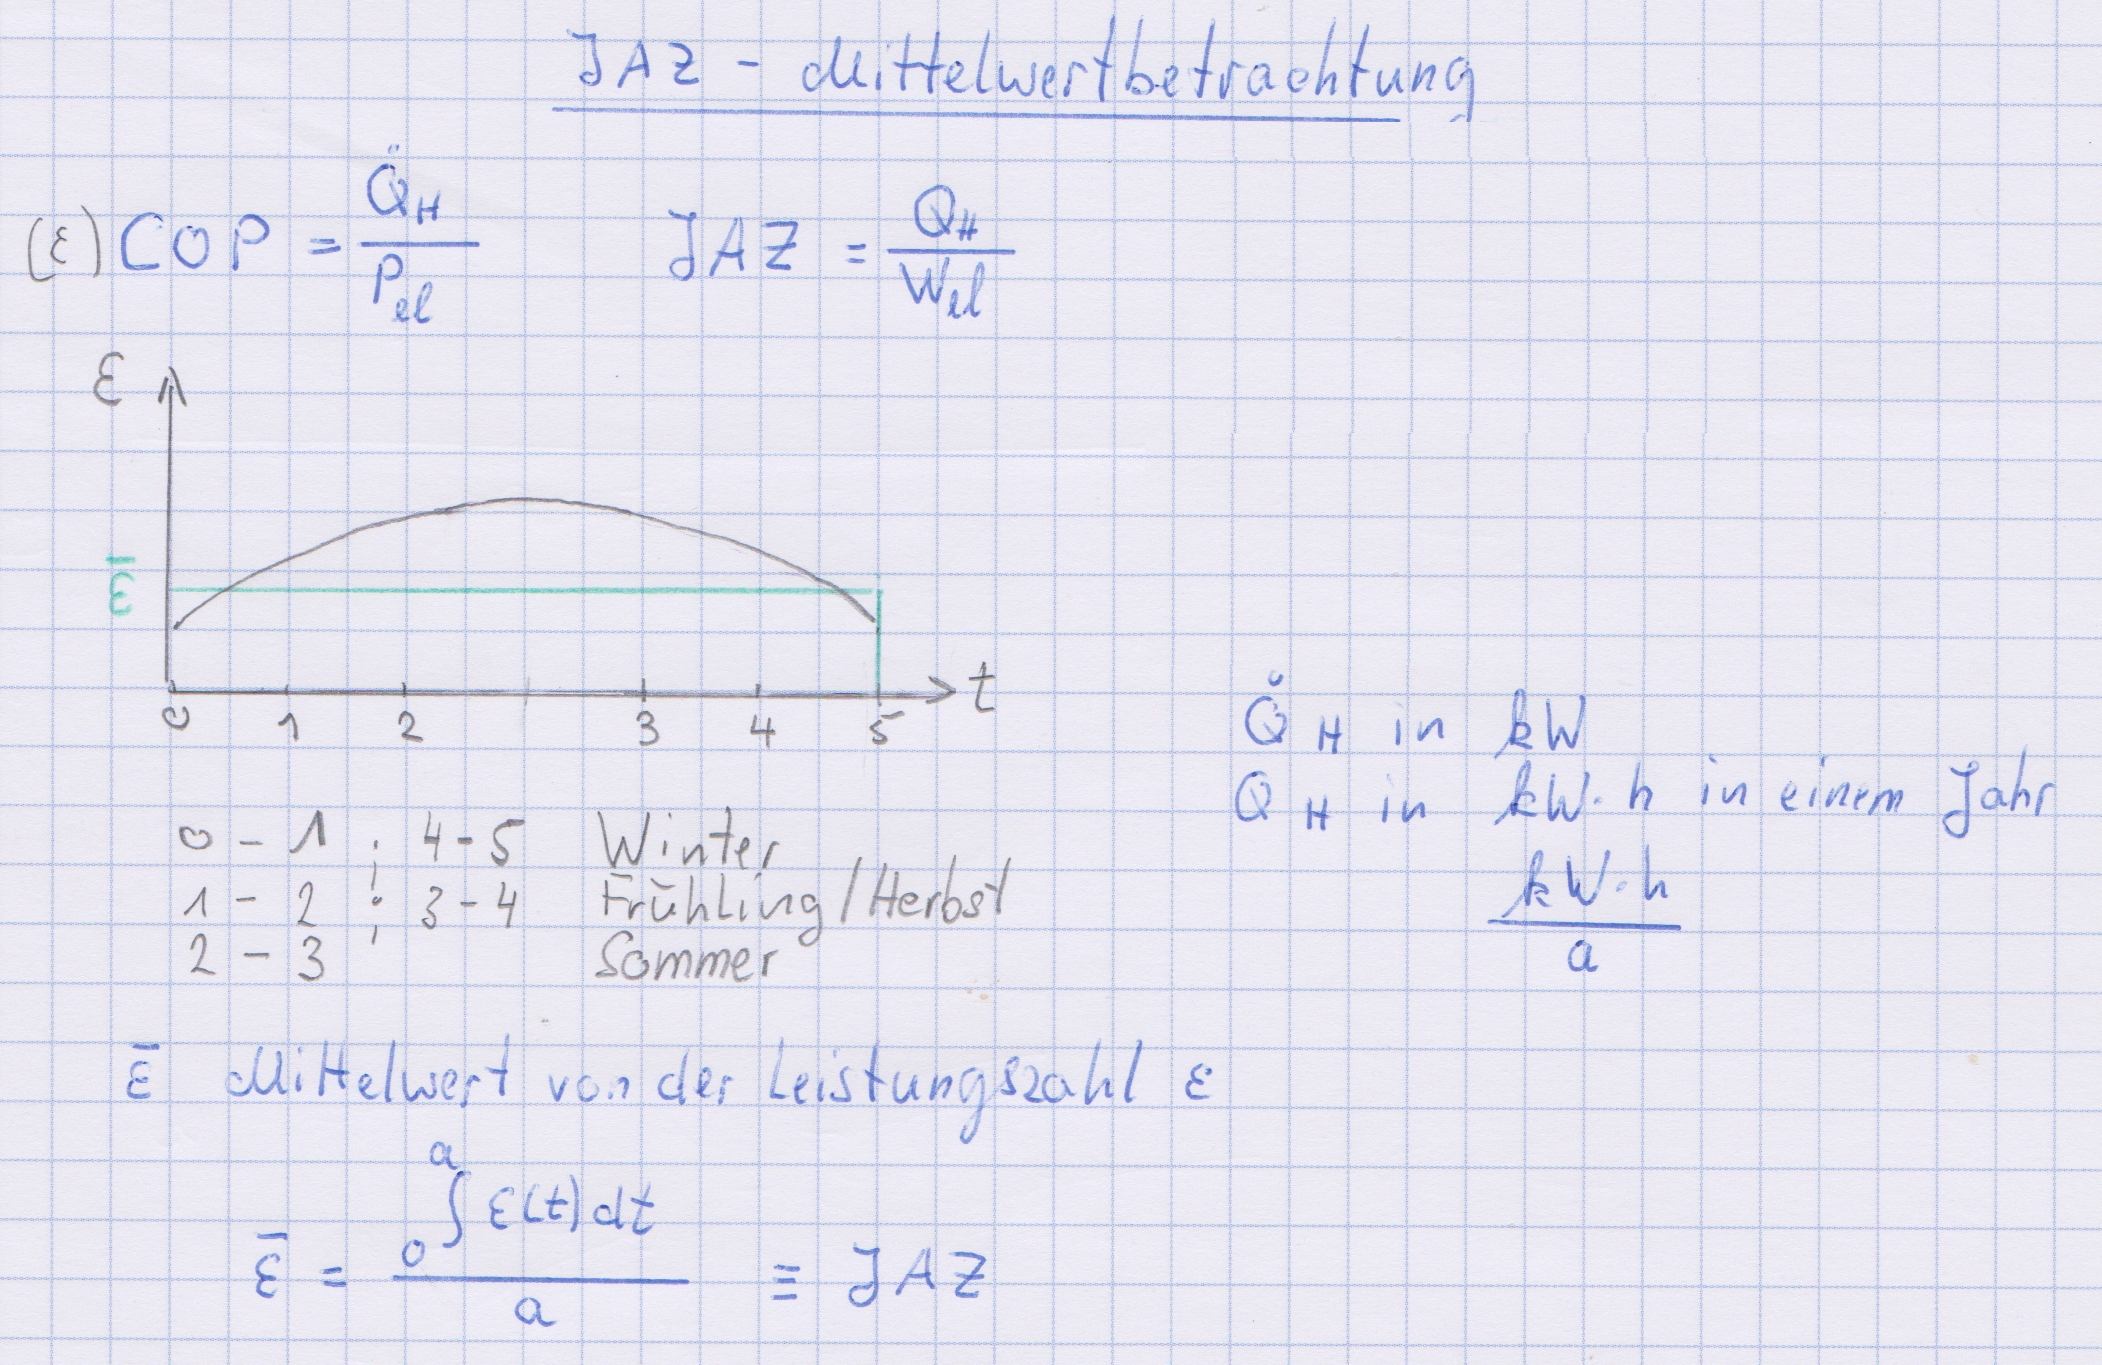 JAZ - Mittelwertbetrachtung
(ε) COP = Q̇H / Pel   JAZ = QH / Wel
ε
ε̄
t
0 1 2 3 4 5
Q̇H in kW
QH in kW·h in einem Jahr
kW·h / a
0 - 1 ; 4 - 5 Winter
1 - 2 ; 3 - 4 Frühling / Herbst
2 - 3 Sommer
ε̄ Mittelwert von der Leistungszahl ε
ε̄ = 0∫a ε(t) dt / a ≡ JAZ